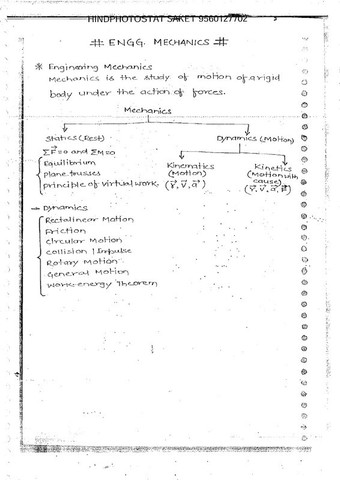 HINDPHOTOSTAT SAKET 9560127702
# ENGG. MECHANICS #
* Engineering Mechanics
Mechanics is the study of motion of a rigid
body under the action of forces.
Mechanics
Statics (Rest)
ΣF⃗=0 and ΣM=0
Equilibrium
Plane trusses
principle of virtual work.
Dynamics (Motion)
Kinematics
(Motion)
(r⃗, v⃗, a⃗)
Kinetics
(Motion with
cause)
(r⃗, v⃗, a⃗, F⃗)
→ Dynamics
Rectalinear Motion
Friction
Circular Motion
collision | Impulse
Rotary Motion
General Motion
Work-energy Theorem